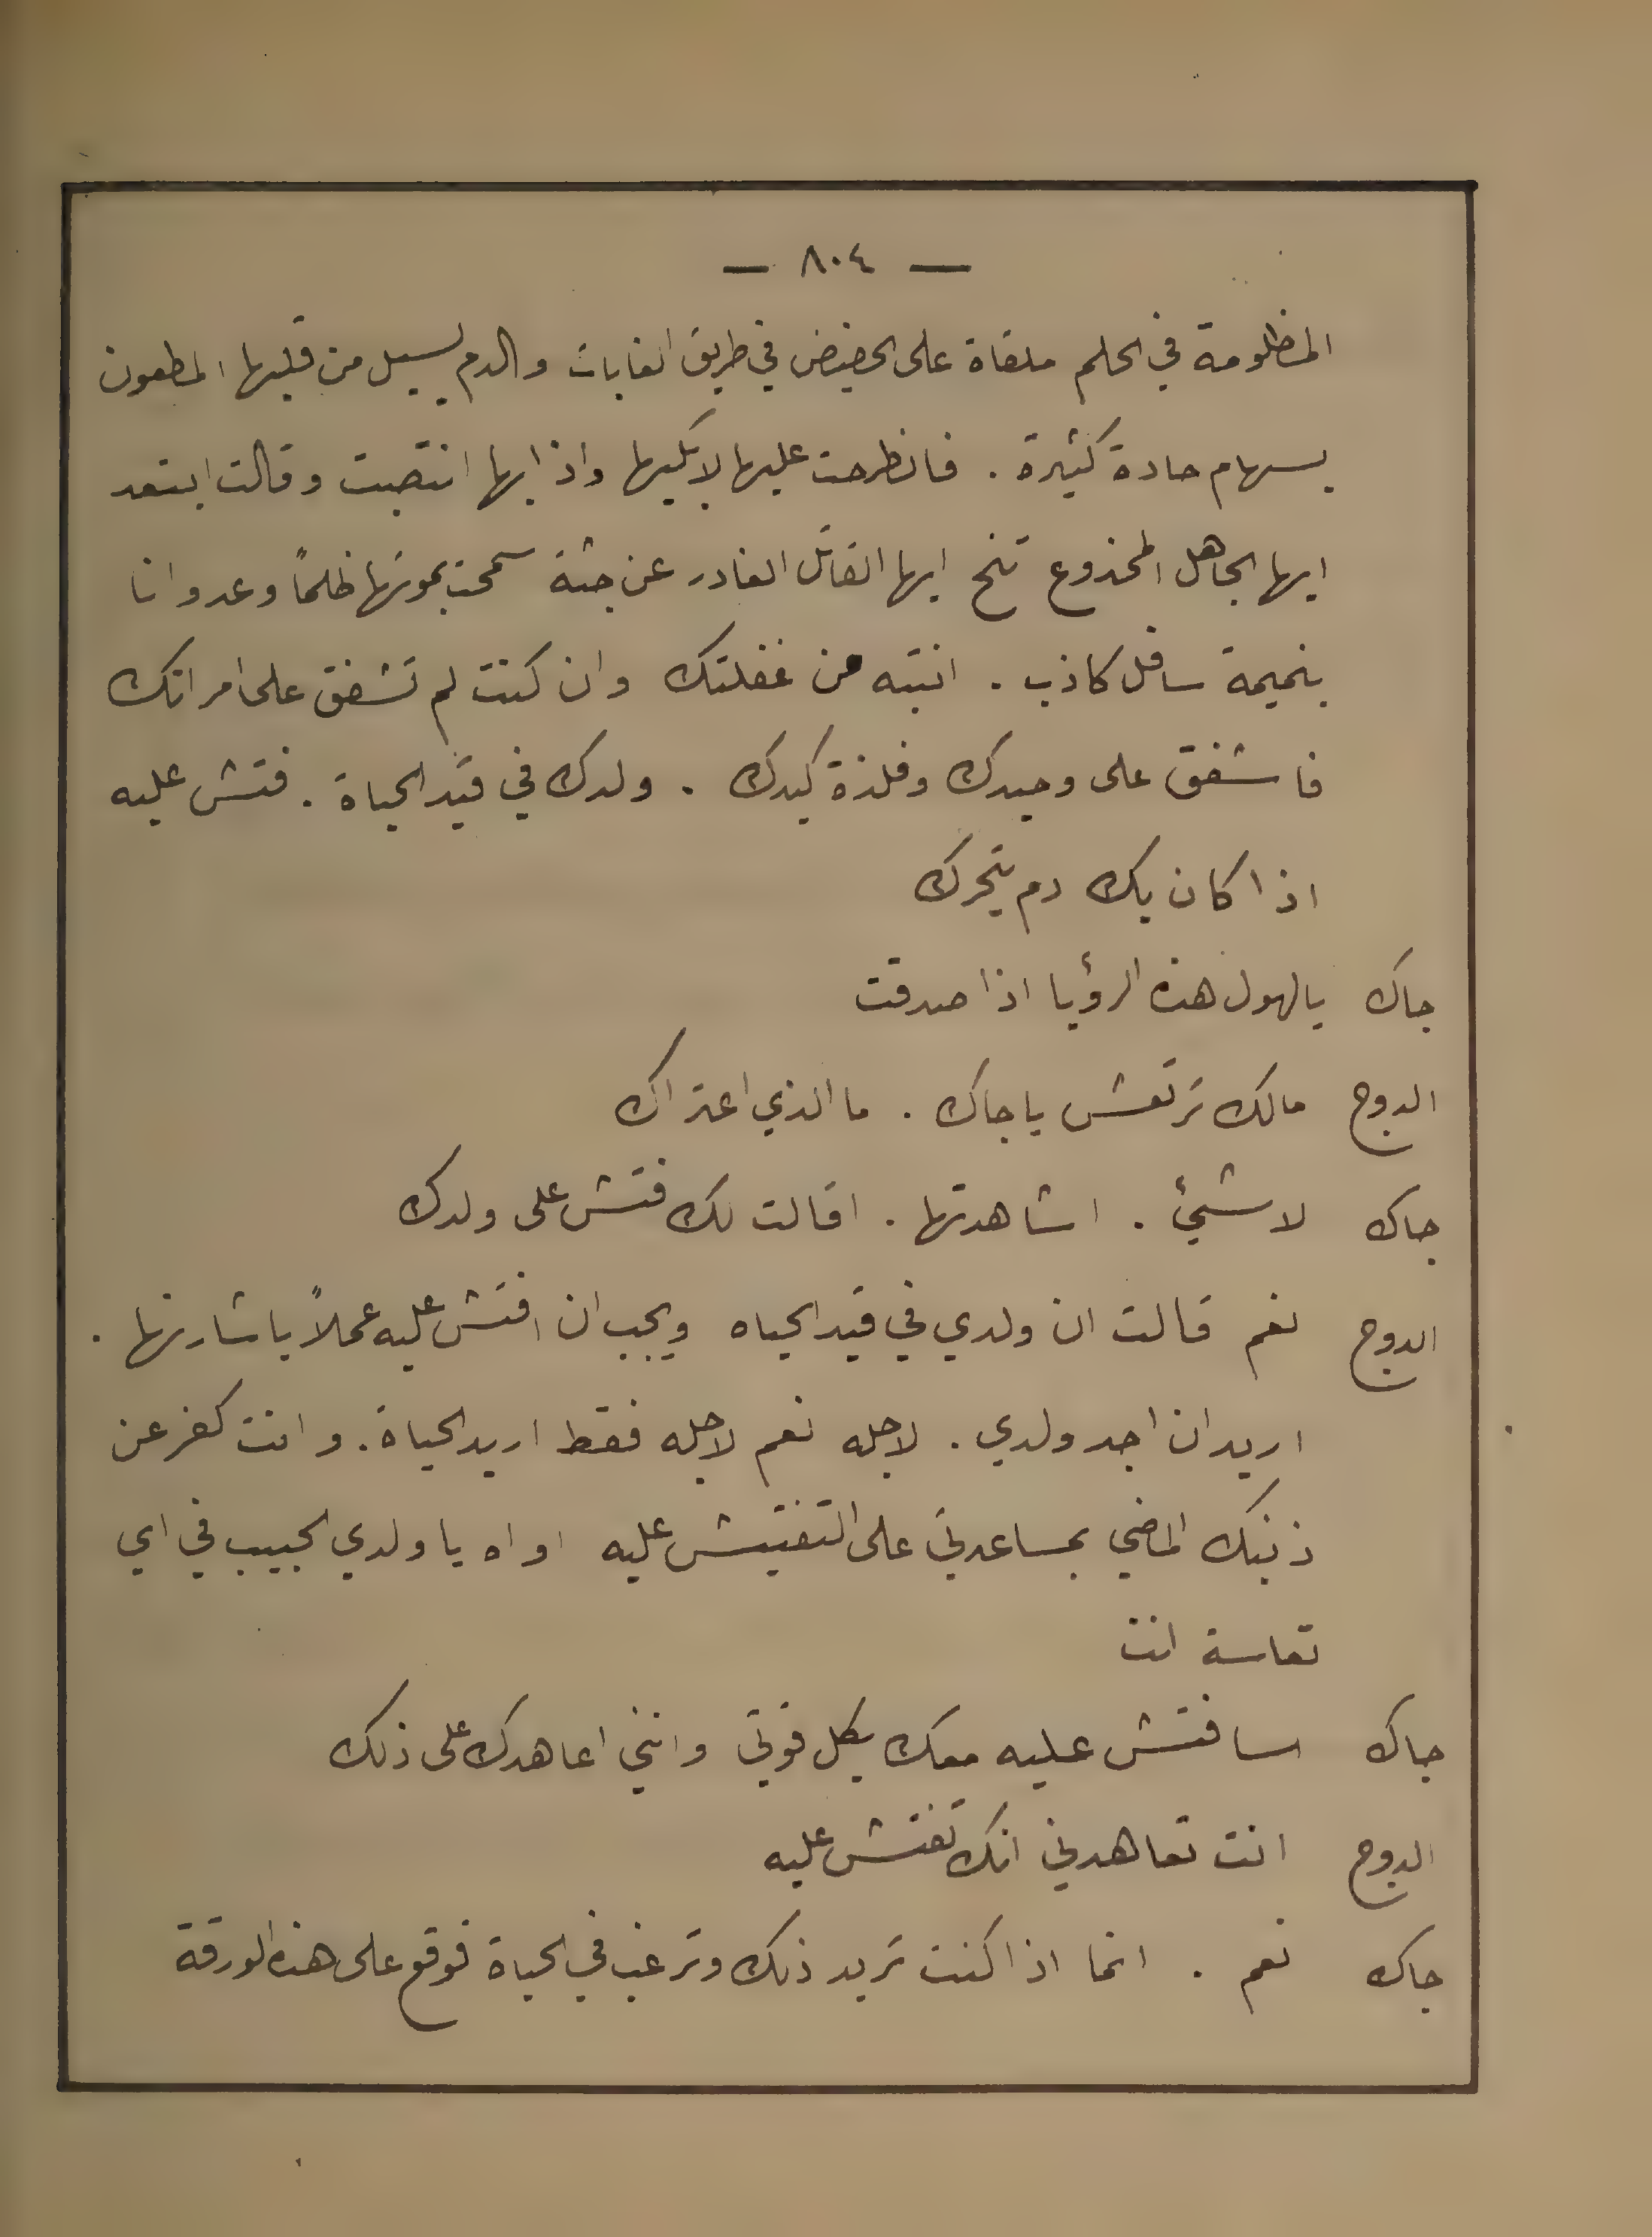 — ٨٠٤ —
المظلومة في الحلم ملقاة على الحضيض في طريق الغابات والدم يسيل من قلبها المطعون
بسهام حادة كثيرة . فانطرحت عليها لابكيها واذا بها انتصبت وقالت ابتعد
ايها الجاهل المخدوع تنح ايها القاتل الغادر عن جثة سمحت بموتها ظلماً وعدوانا
بنميمة سافل كاذب . انتبه من غفلتك وان كنت لم تشفق على امراتك
فاشفق على وحيدك وفلذة كبدك . ولدك في قيد الحياة . فتش عليه
اذا كان بك دم يتحرك
جاك يالهول هذه الرؤيا اذا صدقت
الدوج مالك ترتعش ياجاك . ما الذي اعتراك
جاك لا شيئ . اشاهدتها . اقالت لك فتش على ولدك
الدوج نعم قالت ان ولدي في قيد الحياه ويجب ان افتش عليه عملاً باشارتها .
اريد ان اجد ولدي . لاجله نعم لاجله فقط اريد الحياة . وانت كفر عن
ذنبك الماضي بمساعدتي على التفتيش عليه اواه يا ولدي الحبيب في اي
تعاسة انت
جاك سافتش عليه معك بكل قوتي وانني اعاهدك على ذلك
الدوج انت تعاهدني انك تفتش عليه
جاك نعم . انما اذا كنت تريد ذلك وترغب في الحياة فوقع على هذه الورقة